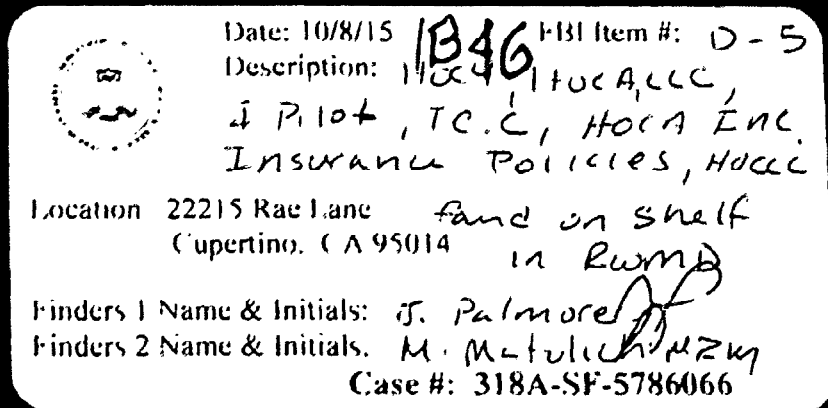 Date: 10/8/15 1B46 FBI Item #: D-5
Description: HUCA, LLC,
& Pilot, TC.C, HOCA Inc.
Insurance Policies, HUCCC
Location 22215 Rae Lane found on shelf
Cupertino, CA 95014 in Rwm D
Finders 1 Name & Initials: J. Palmore
Finders 2 Name & Initials. M. Matulich MZM
Case #: 318A-SF-5786066